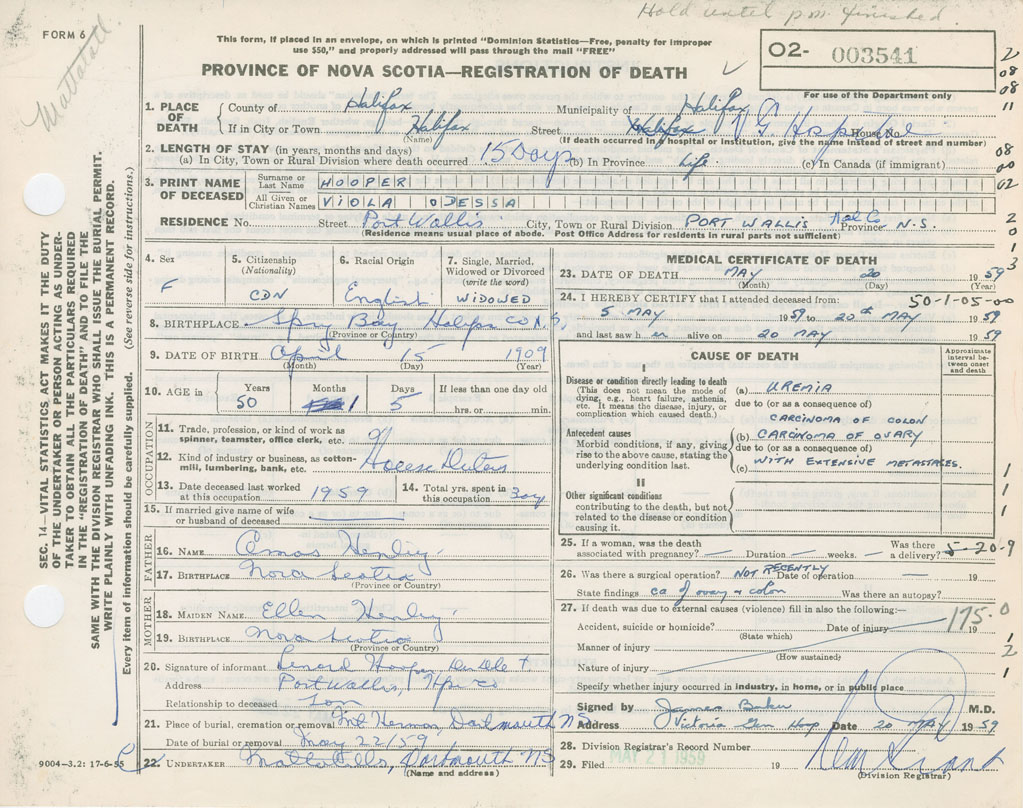 Hold until p.m. finished.
FORM 6
Mattatall
This form, if placed in an envelope, on which is printed "Dominion Statistics—Free, penalty for improper
use $50," and properly addressed will pass through the mail "FREE"
PROVINCE OF NOVA SCOTIA—REGISTRATION OF DEATH
O2- 003541
For use of the Department only
1. PLACE OF DEATH { County of Halifax Municipality of Halifax
If in City or Town Halifax Street Halifax V G. Hospital House No.
(Name) (If death occurred in a hospital or institution, give the name instead of street and number)
2. LENGTH OF STAY (in years, months and days)
(a) In City, Town or Rural Division where death occurred 15 Days (b) In Province Life (c) In Canada (if immigrant)
3. PRINT NAME OF DECEASED { Surname or Last Name HOOPER
All Given or Christian Names VIOLA ODESSA
RESIDENCE No. Street Port Wallis City, Town or Rural Division PORT WALLIS Hal Co Province N.S.
(Residence means usual place of abode. Post Office Address for residents in rural parts not sufficient)
4. Sex F
5. Citizenship (Nationality) CDN
6. Racial Origin English
7. Single, Married, Widowed or Divorced (write the word) WIDOWED
8. BIRTHPLACE Spry Bay Halifx co N.S.
(Province or Country)
9. DATE OF BIRTH April 15 1909
(Month) (Day) (Year)
10. AGE in Years 50 Months 1 Days 5 If less than one day old hrs. or min.
OCCUPATION
11. Trade, profession, or kind of work as spinner, teamster, office clerk, etc.
12. Kind of industry or business, as cotton-mill, lumbering, bank, etc. House Duties
13. Date deceased last worked at this occupation 1959
14. Total yrs. spent in this occupation 30y
15. If married give name of wife or husband of deceased
FATHER
16. NAME Amos Henley
17. BIRTHPLACE Nova Scotia
(Province or Country)
MOTHER
18. MAIDEN NAME Ellen Henley
19. BIRTHPLACE Nova Scotia
(Province or Country)
20. Signature of informant Lenard Hooper
Address Port Wallis, Hfx co
Relationship to deceased Son
21. Place of burial, cremation or removal Mt Hermon, Dartmouth NS
Date of burial or removal May 22/59
22. UNDERTAKER Mattatalls, Dartmouth NS
(Name and address)
9004-3.2: 17-6-55
MEDICAL CERTIFICATE OF DEATH
23. DATE OF DEATH MAY 20 1959
(Month) (Day) (Year)
24. I HEREBY CERTIFY that I attended deceased from: 50-1-05-00
5 MAY 1959 to 20th MAY 1959
and last saw h er alive on 20 MAY 1959
CAUSE OF DEATH
Approximate interval between onset and death
I
Disease or condition directly leading to death
(This does not mean the mode of dying, e.g., heart failure, asthenia, etc. It means the disease, injury, or complication which caused death.)
(a) UREMIA
due to (or as a consequence of)
CARCINOMA OF COLON
Antecedent causes
Morbid conditions, if any, giving rise to the above cause, stating the underlying condition last.
(b) CARCINOMA OF OVARY
due to (or as a consequence of)
(c) WITH EXTENSIVE METASTASES.
II
Other significant conditions
contributing to the death, but not related to the disease or condition causing it.
25. If a woman, was the death associated with pregnancy? — Duration — weeks. — Was there a delivery? 5-20-9
26. Was there a surgical operation? NOT RECENTLY Date of operation — 19
State findings ca of ovary & colon Was there an autopsy?
27. If death was due to external causes (violence) fill in also the following:—
Accident, suicide or homicide? Date of injury 19
(State which)
175-0
Manner of injury
(How sustained)
Nature of injury
Specify whether injury occurred in industry, in home, or in public place
Signed by James Baker M.D.
Address Victoria Gen Hosp Date 20 MAY 1959
28. Division Registrar's Record Number
29. Filed MAY 21 1959 19
(Division Registrar)
SEC. 14—VITAL STATISTICS ACT MAKES IT THE DUTY
OF THE UNDERTAKER OR PERSON ACTING AS UNDER-
TAKER "TO OBTAIN ALL THE PARTICULARS REQUIRED
IN THE "REGISTRATION OF DEATH" AND TO FILE THE
SAME WITH THE DIVISION REGISTRAR WHO SHALL ISSUE THE BURIAL PERMIT.
WRITE PLAINLY WITH UNFADING INK. THIS IS A PERMANENT RECORD.
Every item of information should be carefully supplied. (See reverse side for instructions.)
2
08
08
11
08
00
02
2
0
1
3
1
1
1
1
2
1